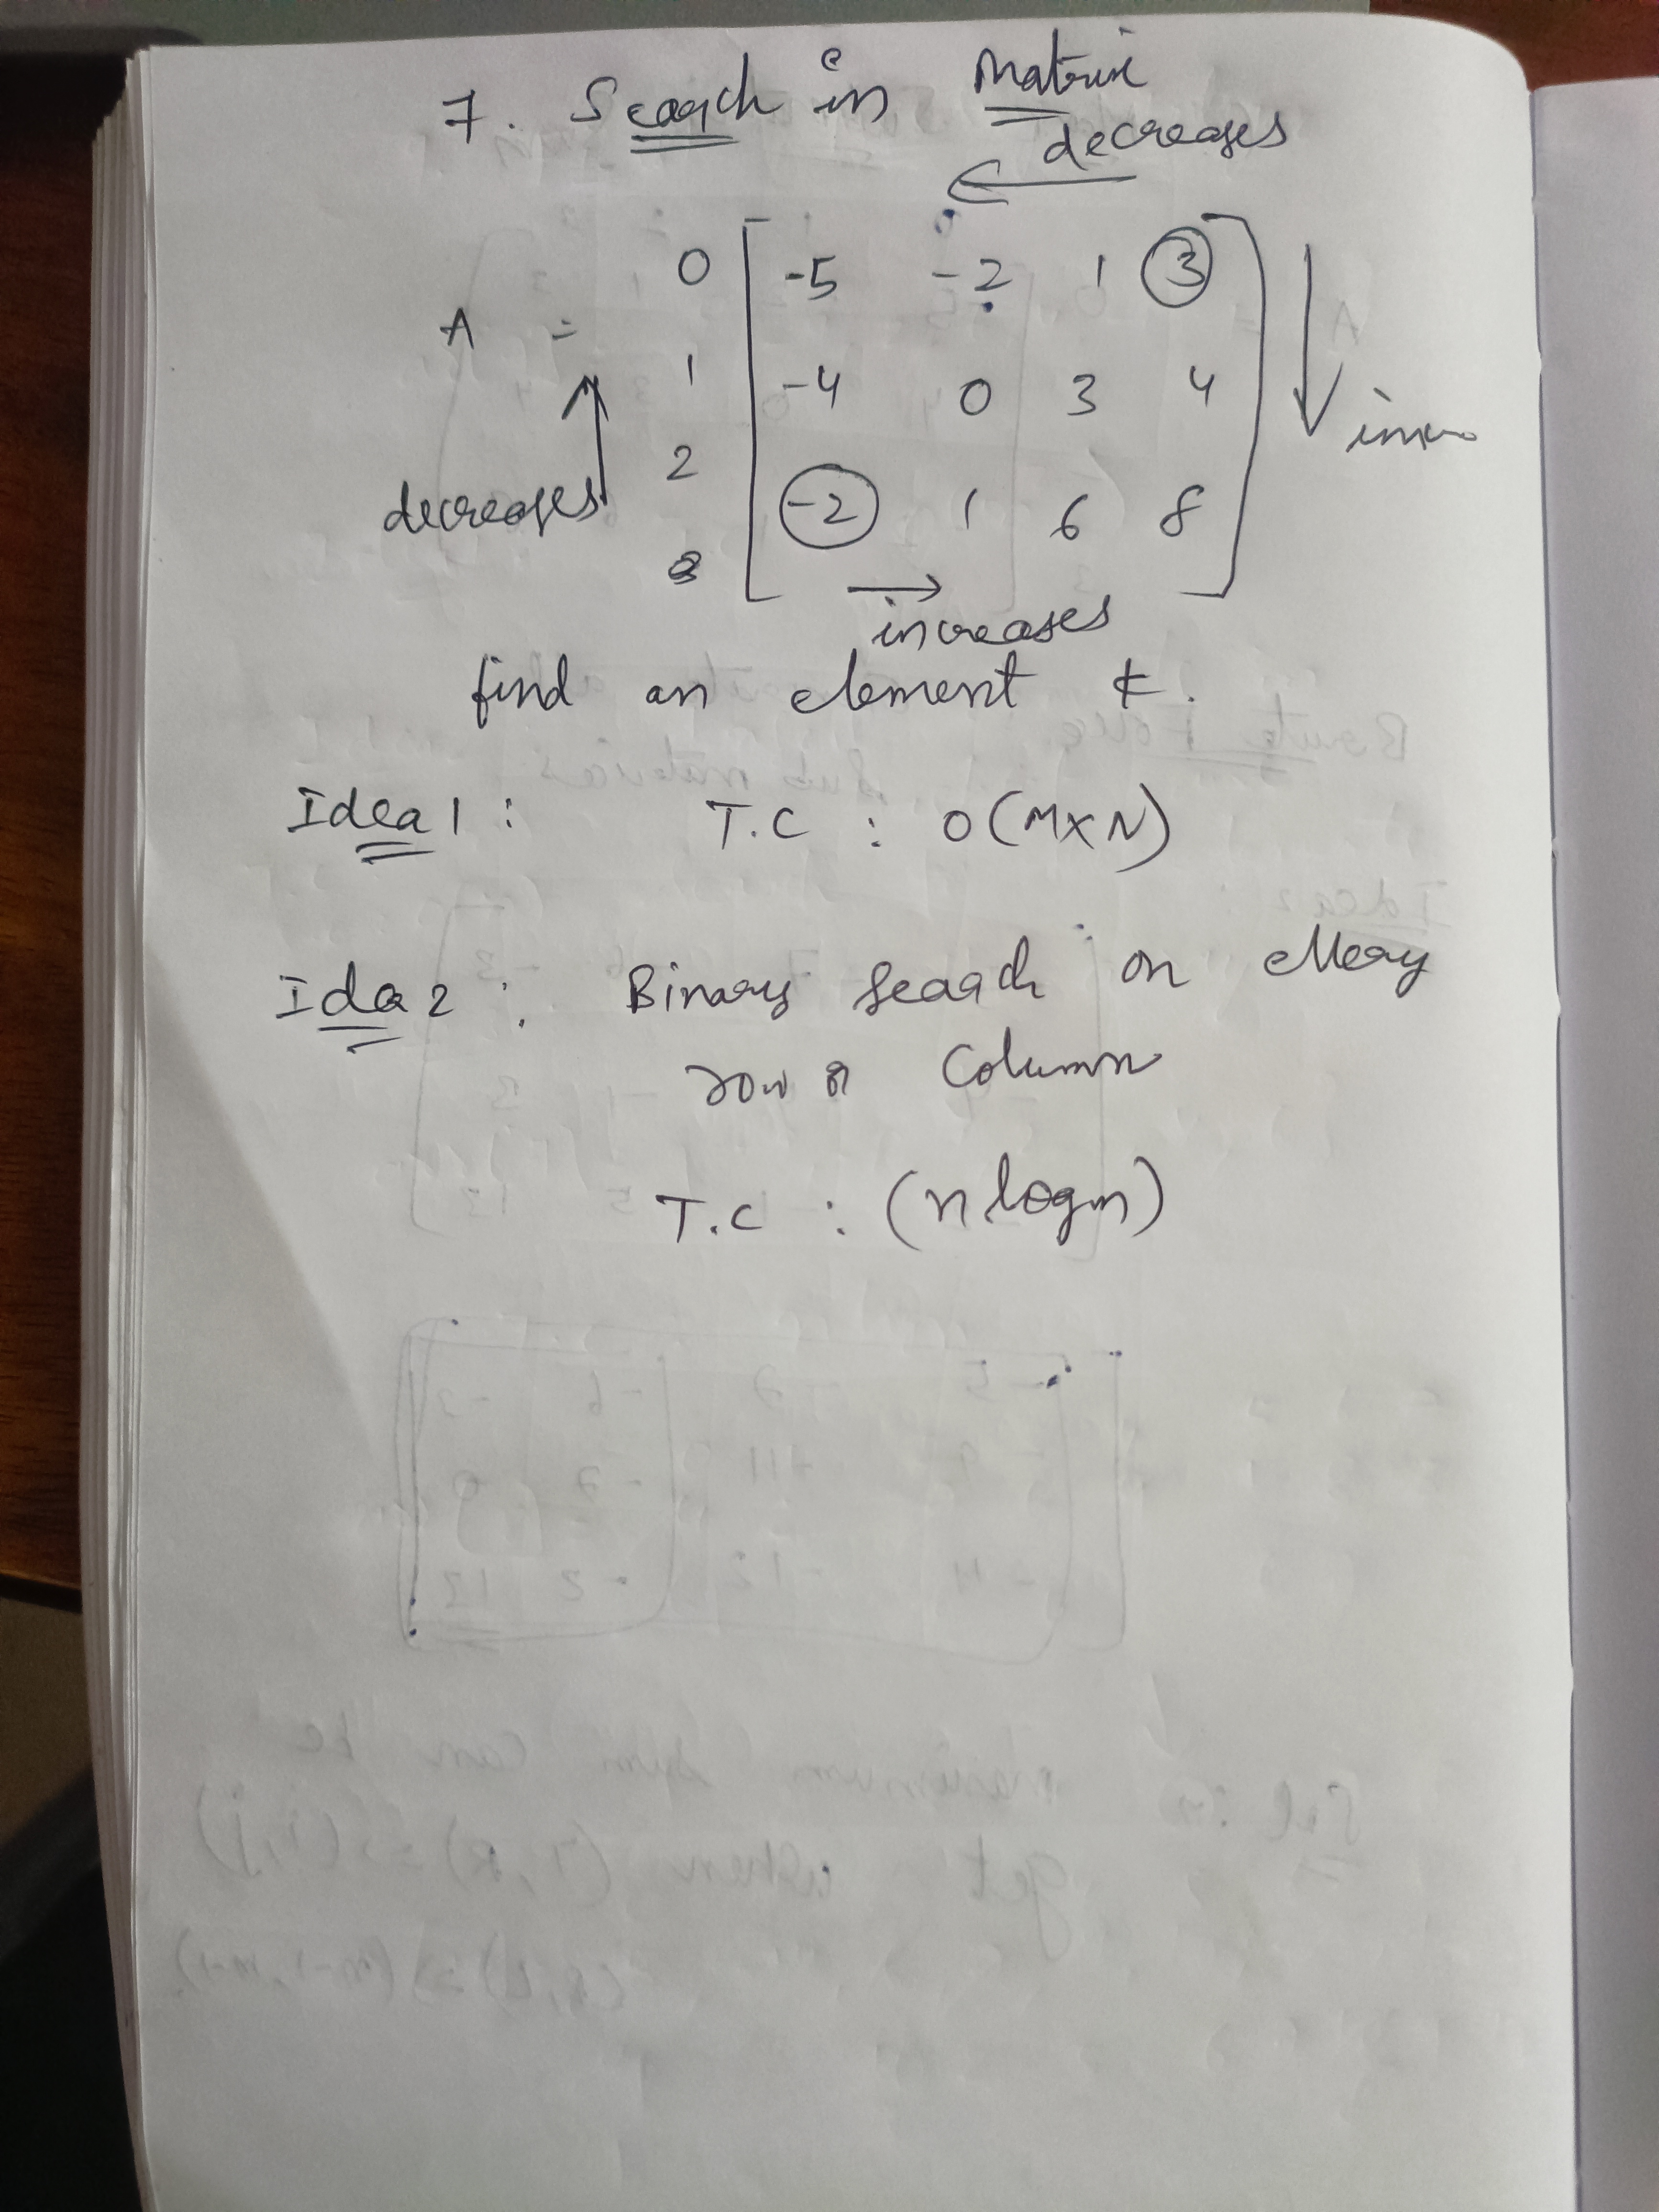 7. Search in Matrix
decreases
0 -5 -2 1 3
A =
1 -4 0 3 4
2
decreases
-2 1 6 8
3
increases
find an element k.
Idea 1 : T.C : O(M×N)
Idea 2 : Binary Search on every
row or Column
T.C : (n logm)